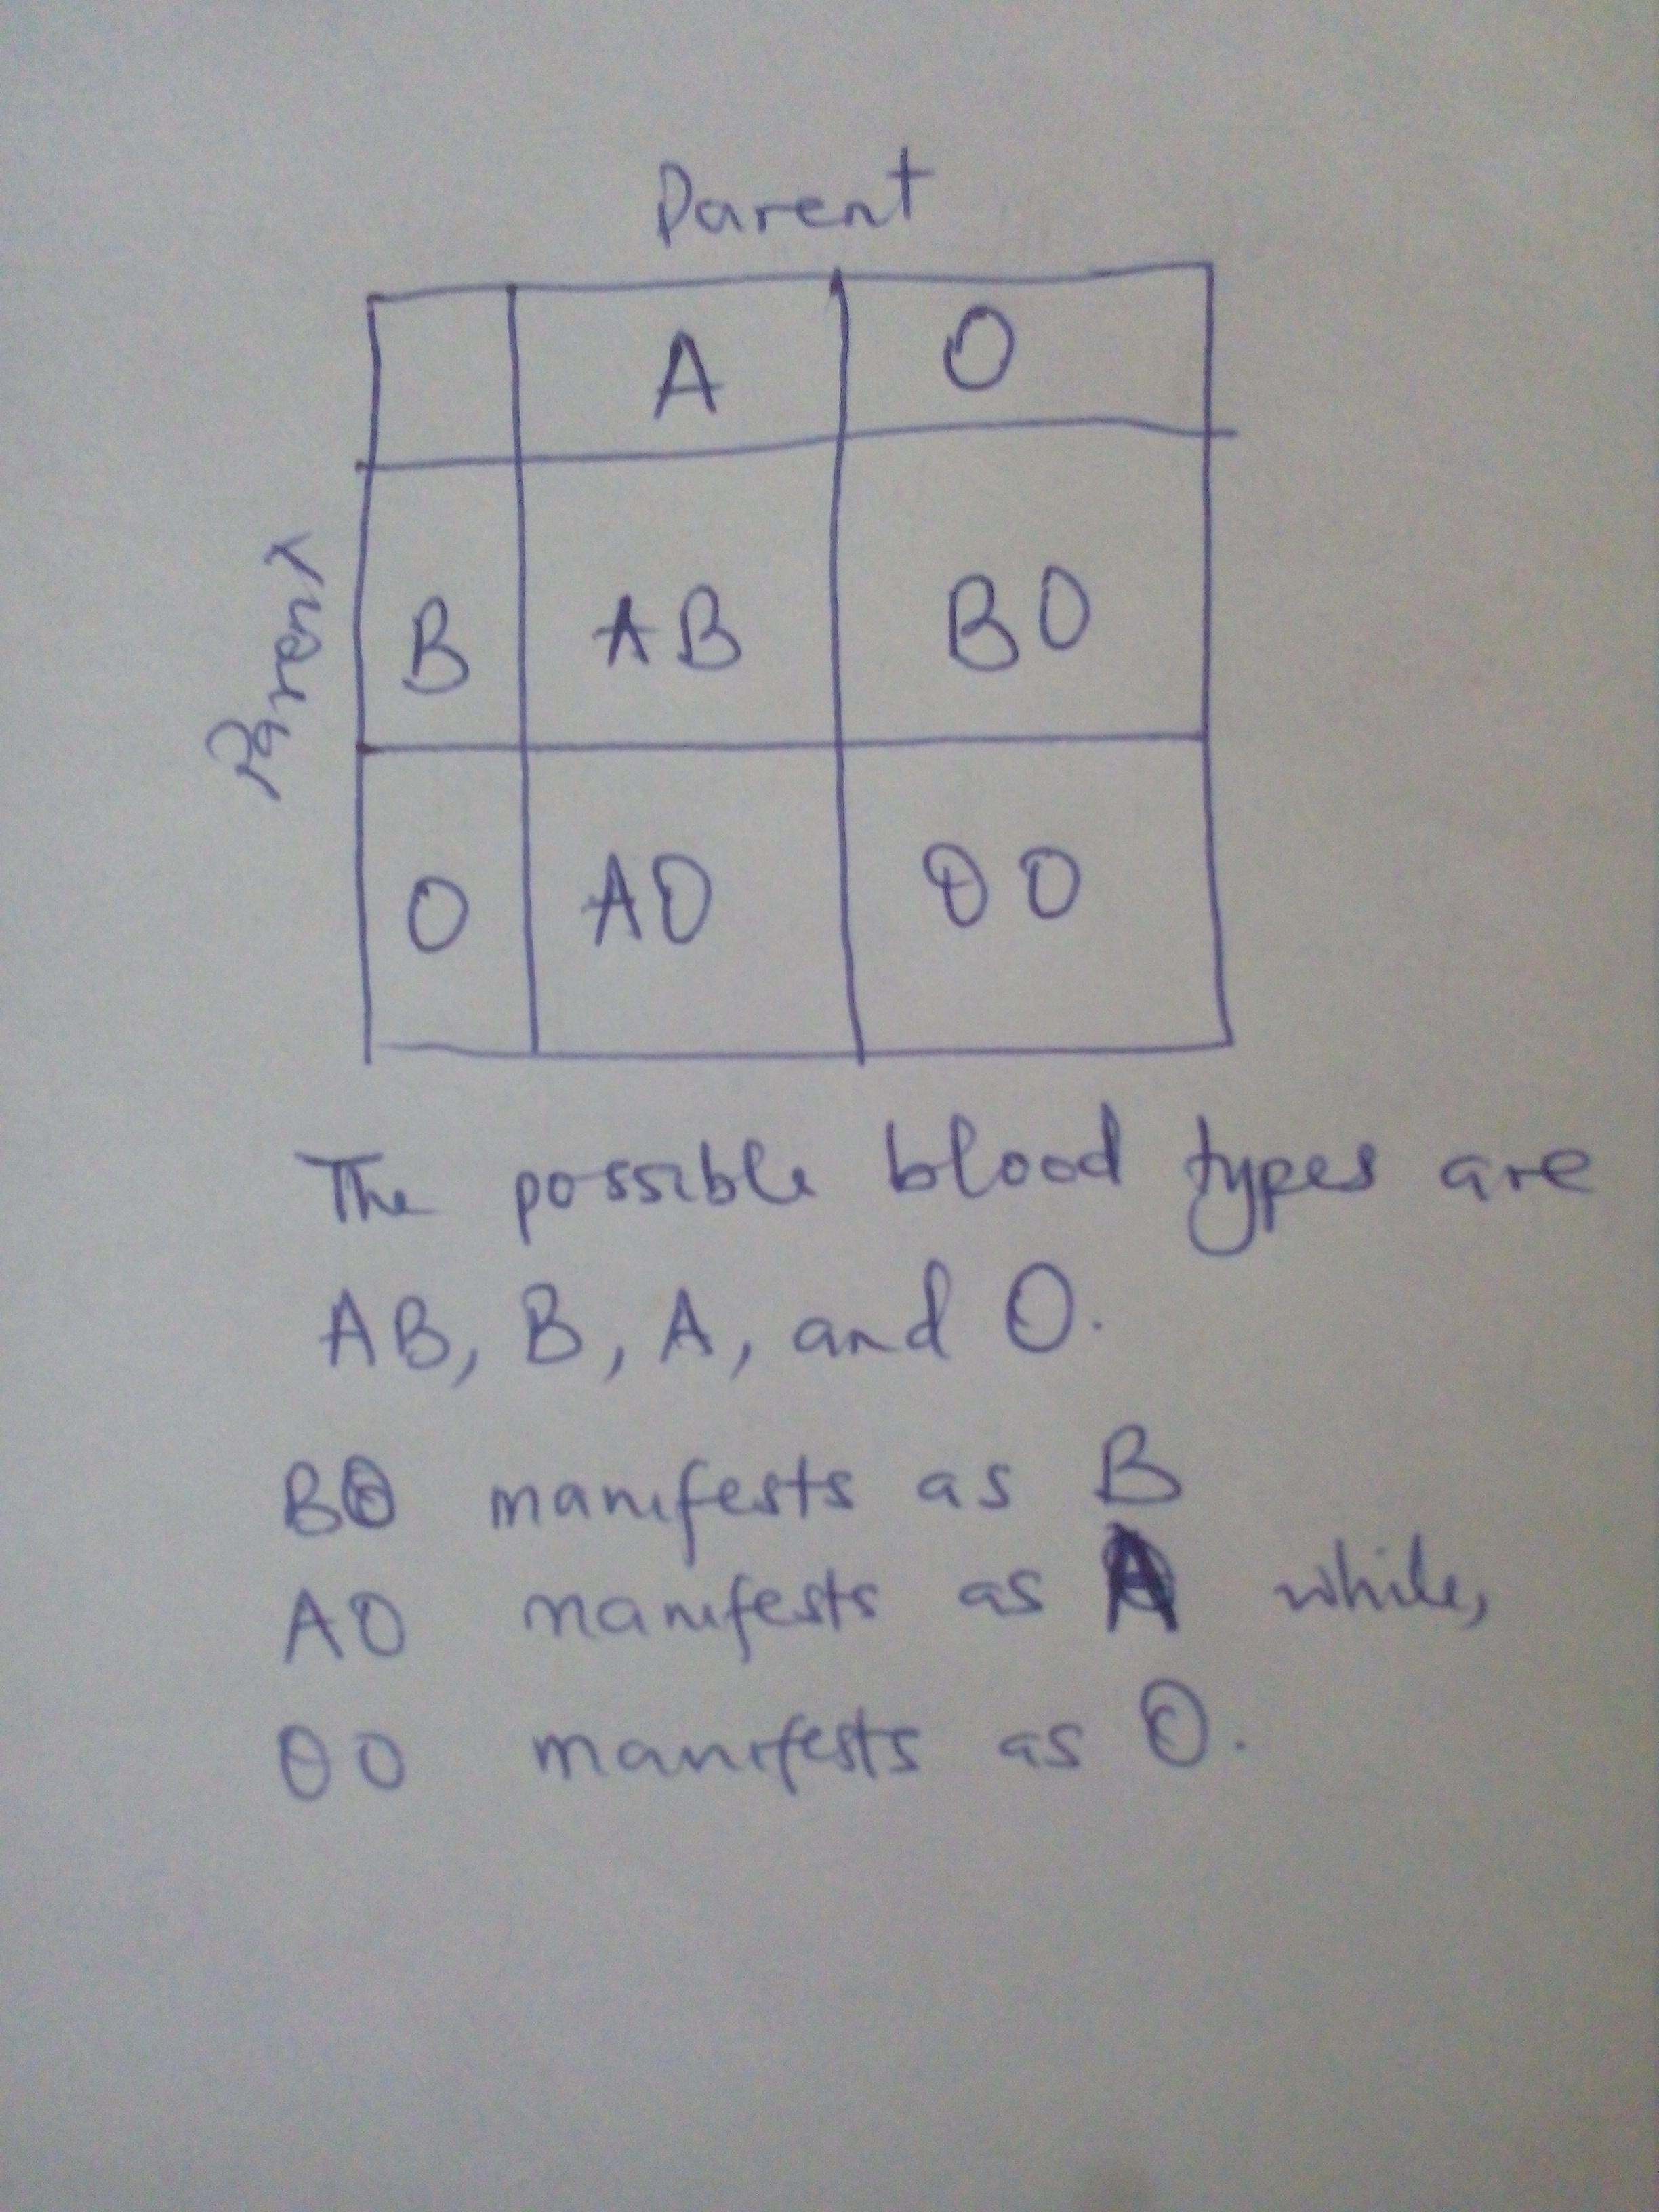 Parent
A O
Parent
B AB BO
O AO OO
The possible blood types are
AB, B, A, and O.
BO manifests as B
AO manifests as A while,
OO manifests as O.